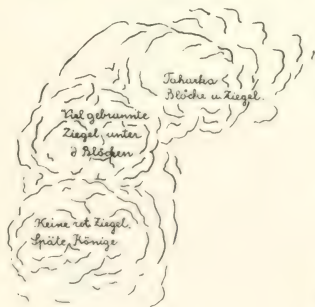 Taharka
Blöcke u. Ziegel.
Viel gebrannte
Ziegel, unter
d Blöcken
Keine rot Ziegel.
Späte Könige